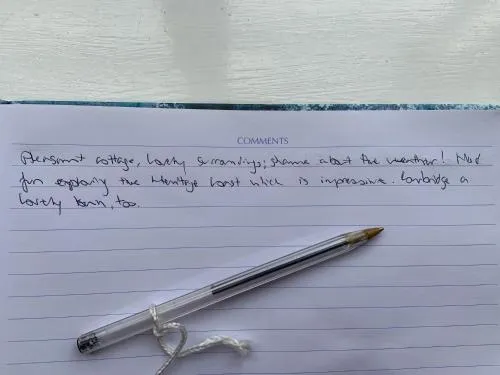 COMMENTS
Pleasant cottage, lovely surroundings; shame about the weather! Had
fun exploring the Heritage Coast which is impressive. Corbridge a
lovely town, too.